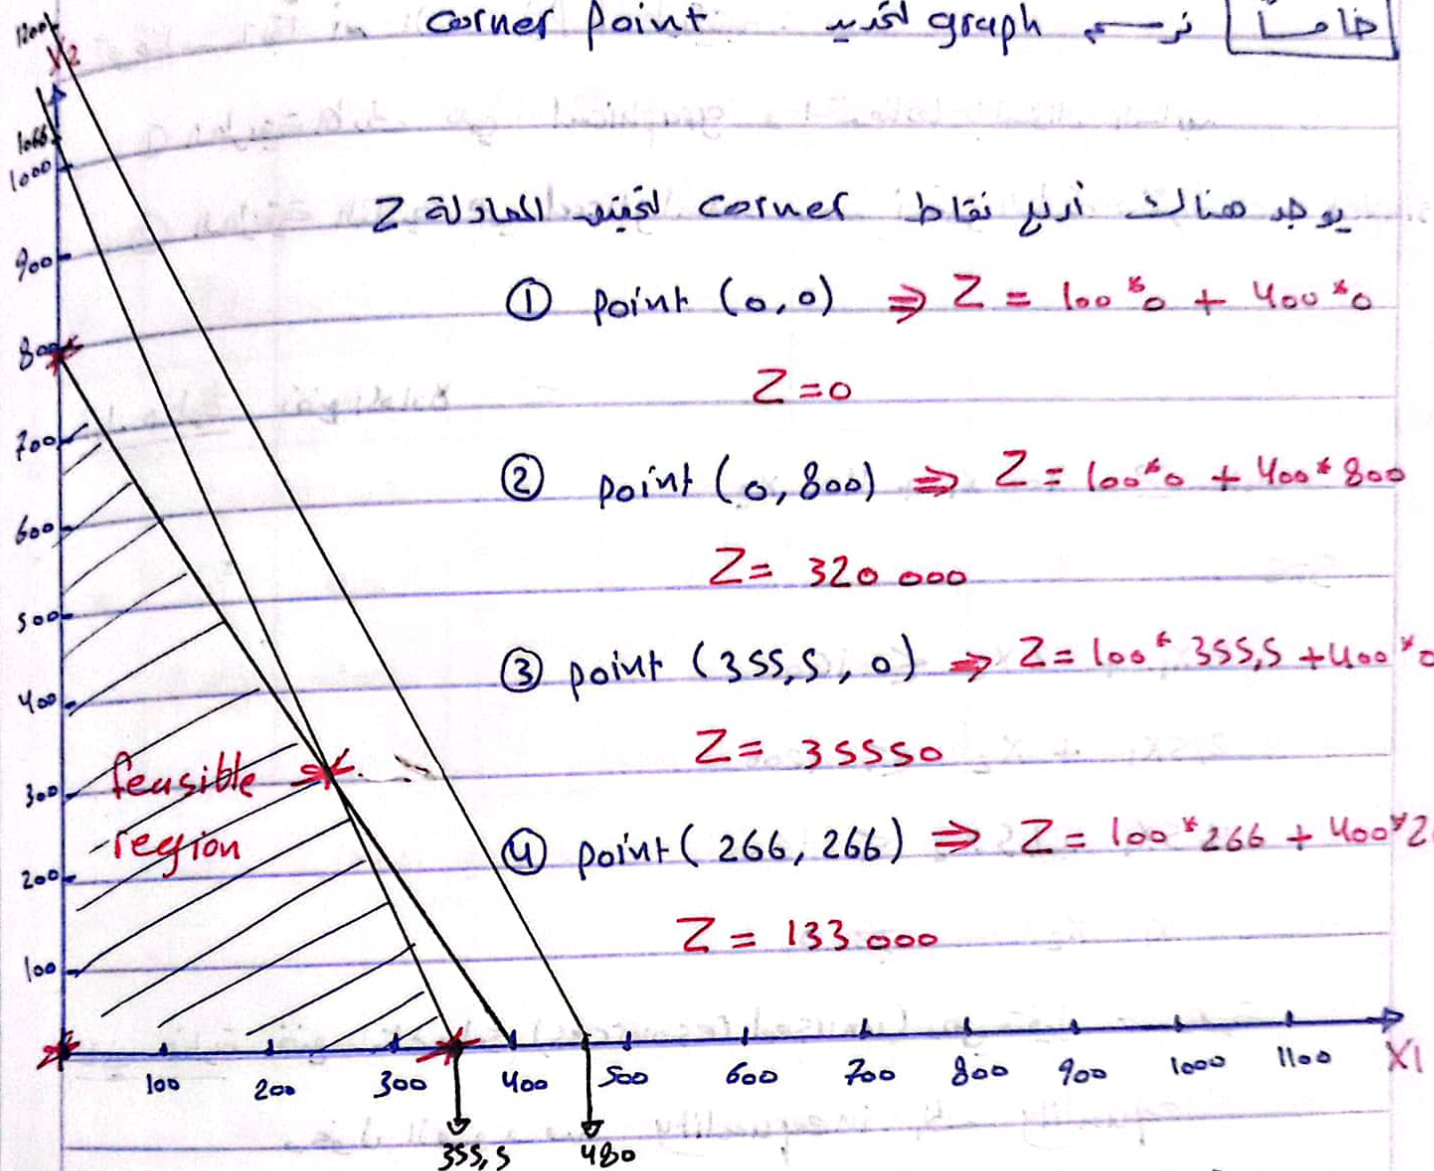 خامساً نرسم graph لتحديد corner point
يوجد هناك أربع نقاط corner لتحقيق المعادلة Z
① point (0,0) ⇒ Z = 100*0 + 400*0
Z=0
② point (0,800) ⇒ Z = 100*0 + 400*800
Z= 320 000
③ point (355,5, 0) ⇒ Z= 100* 355,5 +400*0
Z= 35550
④ point( 266, 266) ⇒ Z= 100*266 + 400*2
Z = 133 000
feasible
region
1200
X2
1066
1000
900
800
700
600
500
400
300
200
100
100 200 300 400 500 600 700 800 900 1000 1100 X1
355,5 480